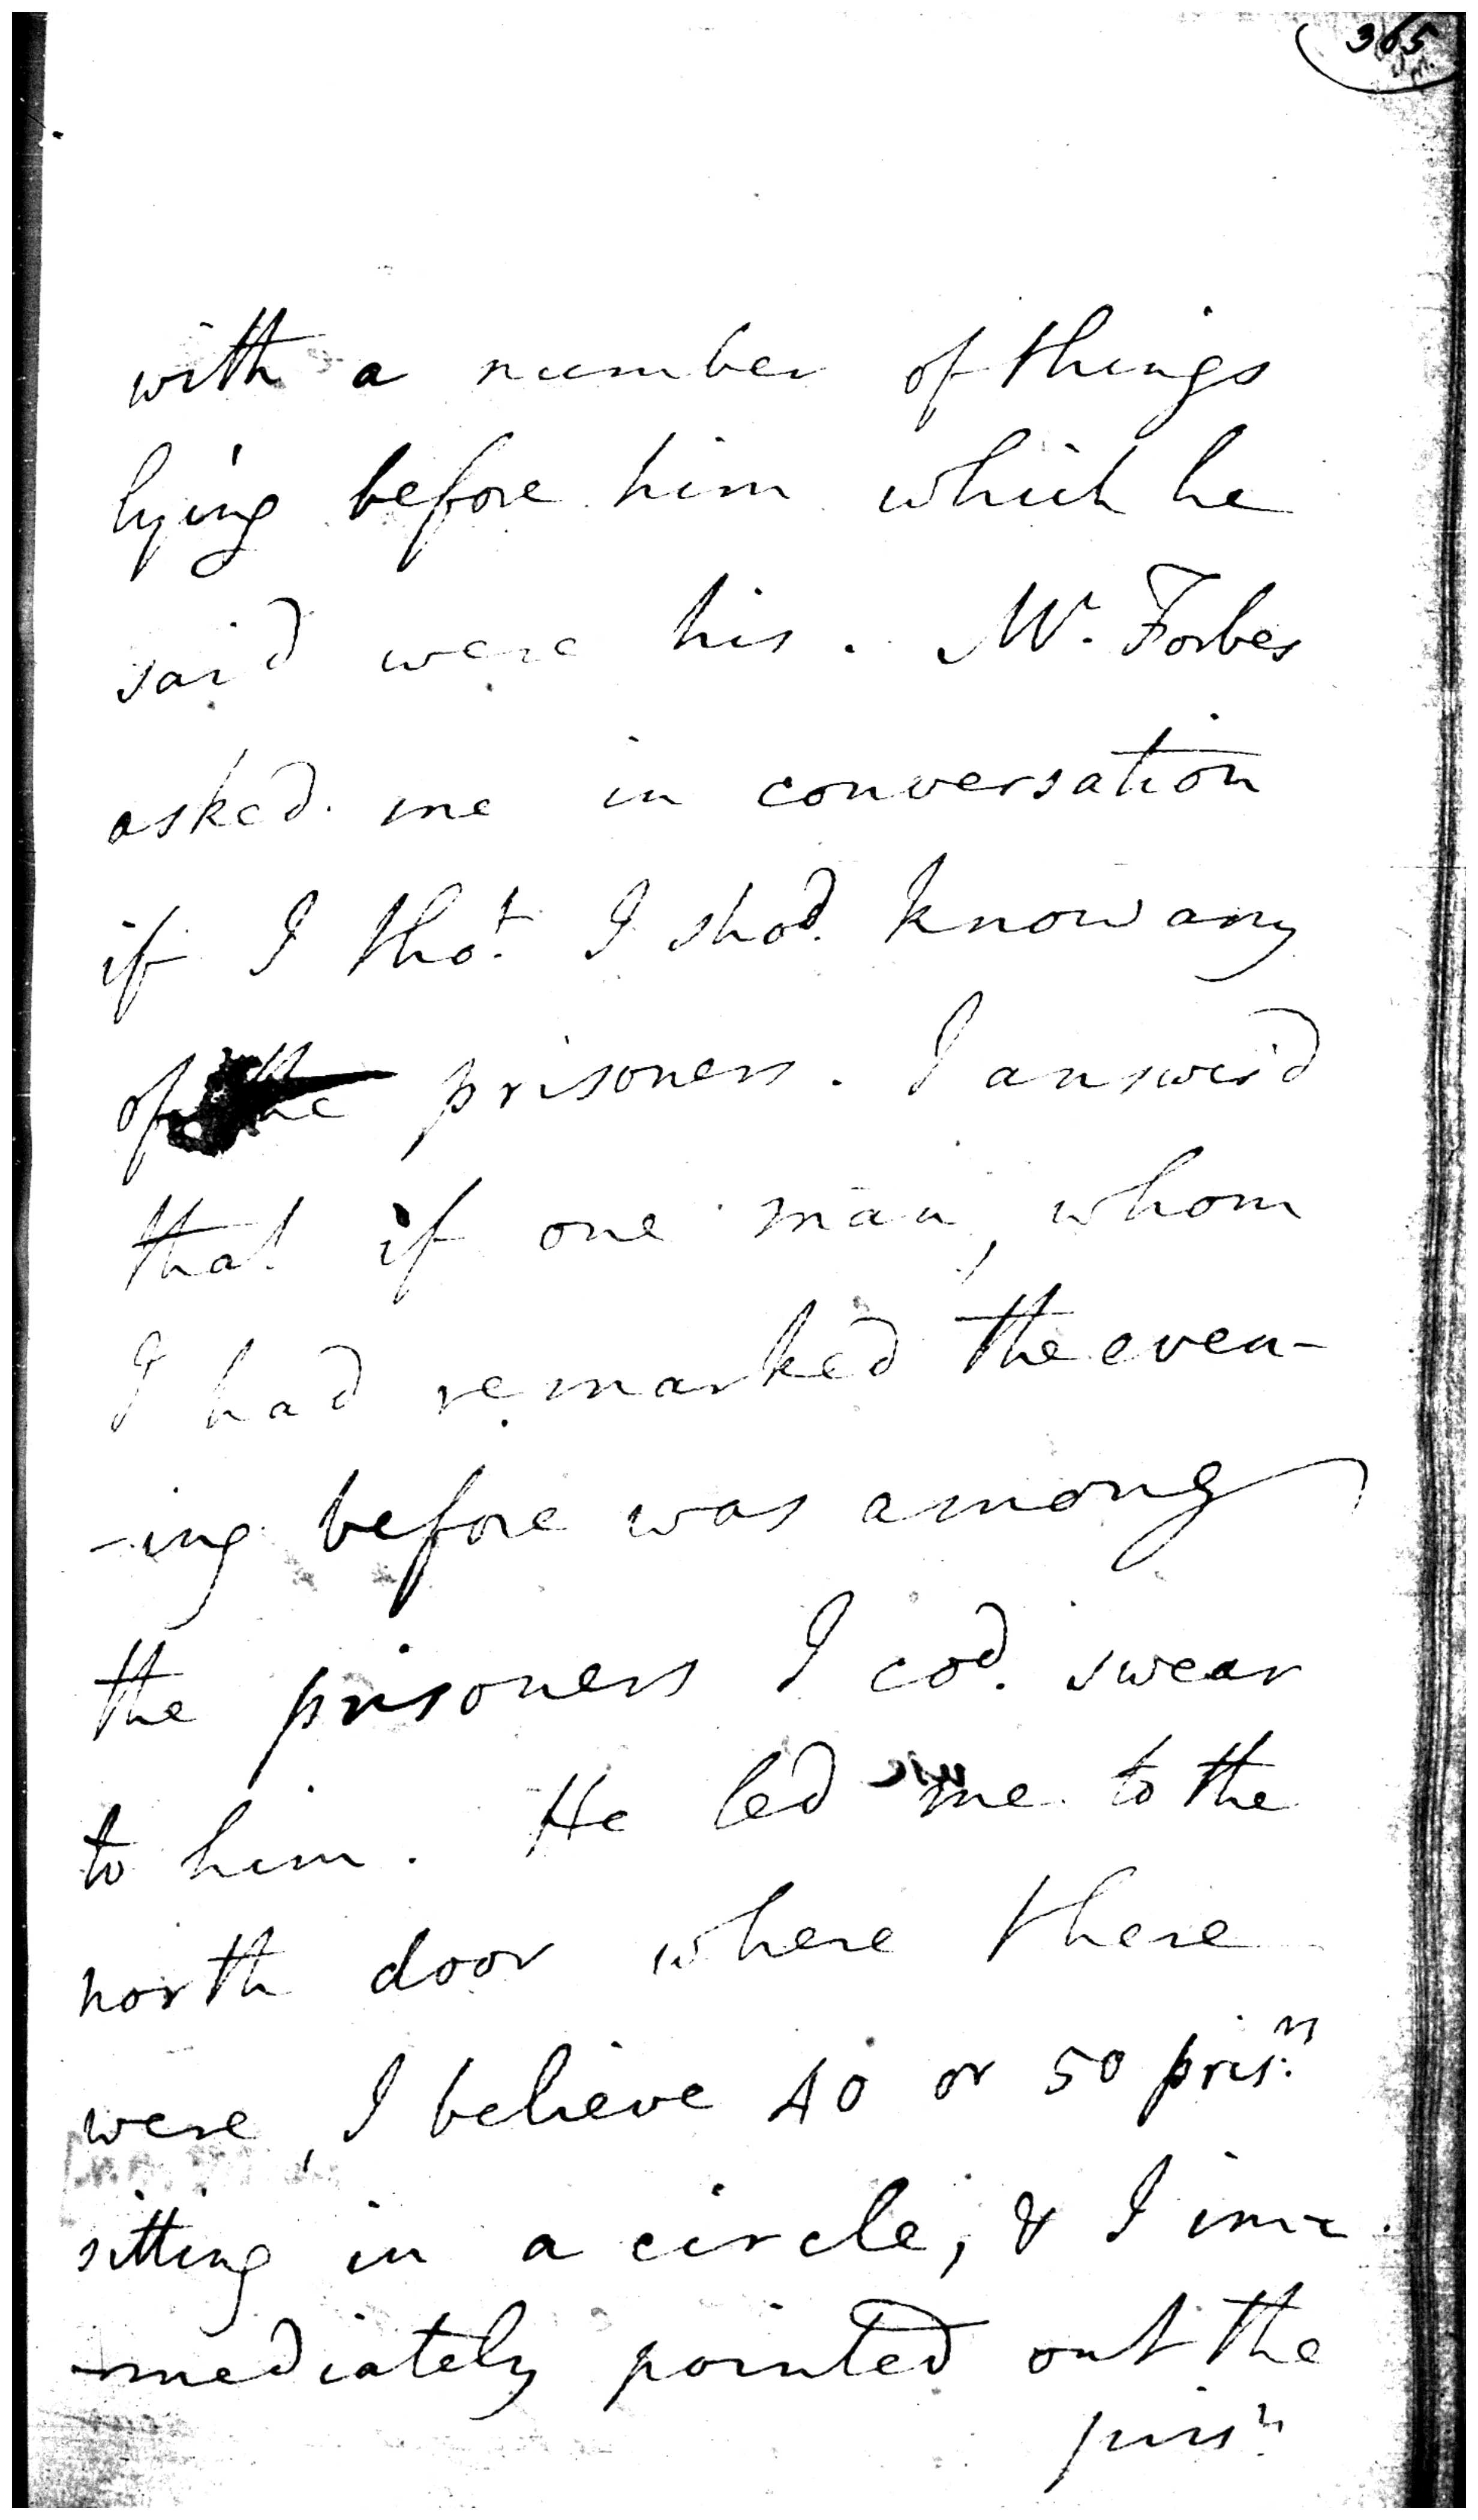 365
with a number of things
lying before him which he
said were his. Mr. Forbes
asked me in conversation
if I tho.t I shod. know any
of the prisoners. I answer'd
that if one man, whom
I had remarked the even-
-ing before was among
the prisoners I cod. swear
to him. He led me to the
north door where there
were, I believe 40 or 50 pris.rs
sitting in a circle, & I im-
-mediately pointed out the
pris.r